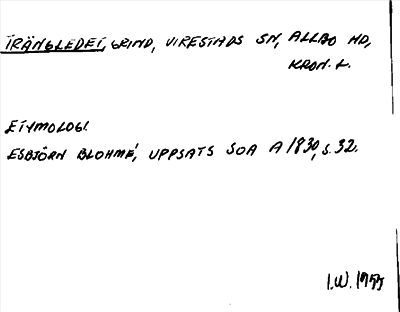 TRÄNGLEDET, GRIND, VIRESTADS SN, ALLBO HD,
KRON. L.
ETYMOLOGI.
ESBJÖRN BLOHMÉ, UPPSATS SOA A 1830, S. 32.
I.W. 1955